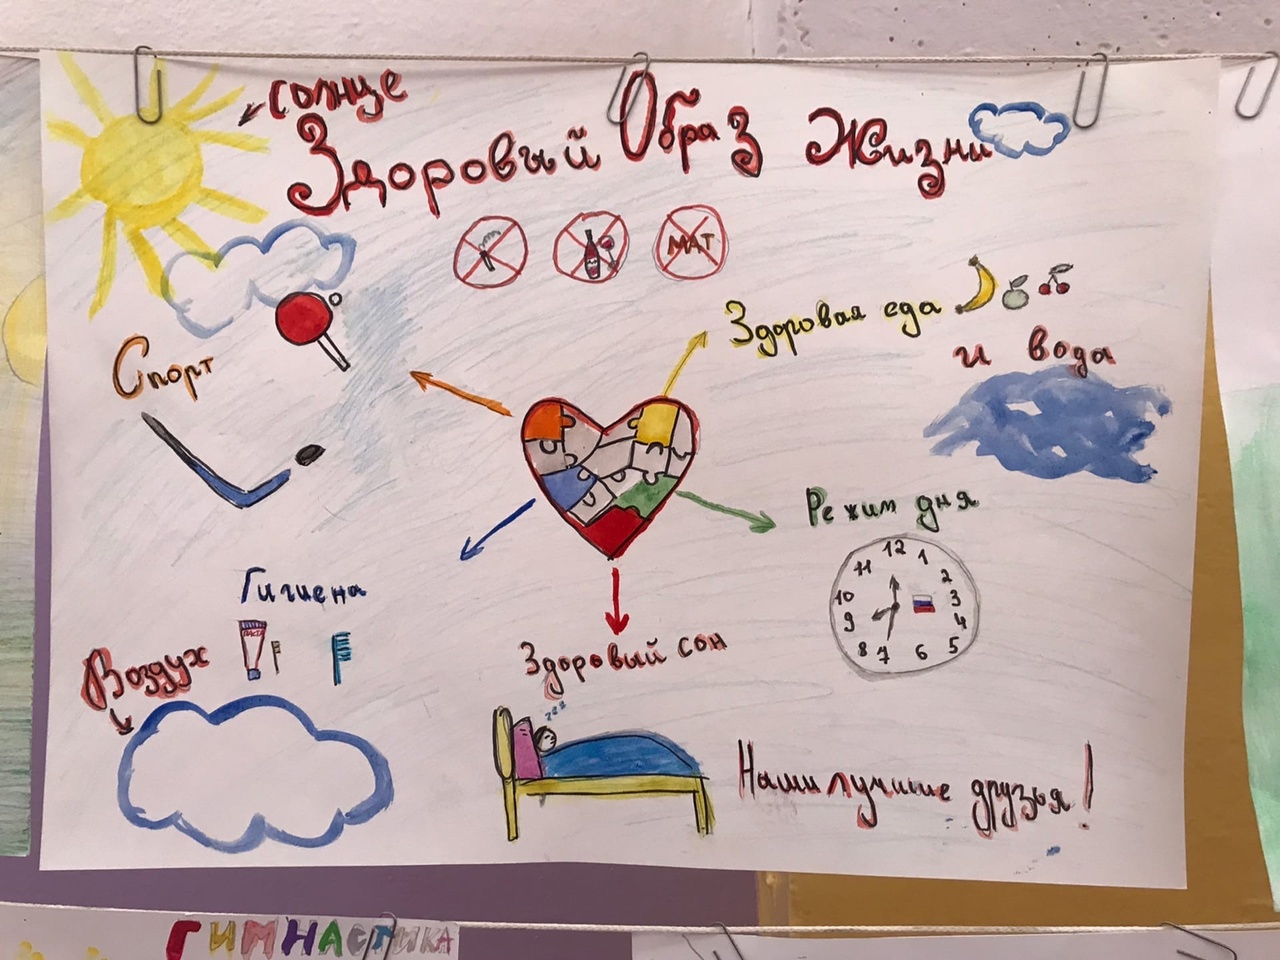 солнце
Здоровый Образ Жизни
МАТ
Здоровая еда
и вода
Спорт
Режим дня
12
1
2
3
4
5
6
7
8
9
10
11
Гигиена
ПАСТА
Воздух
Здоровый сон
zzz
Наши лучшие друзья!
ГИМНАСТИКА